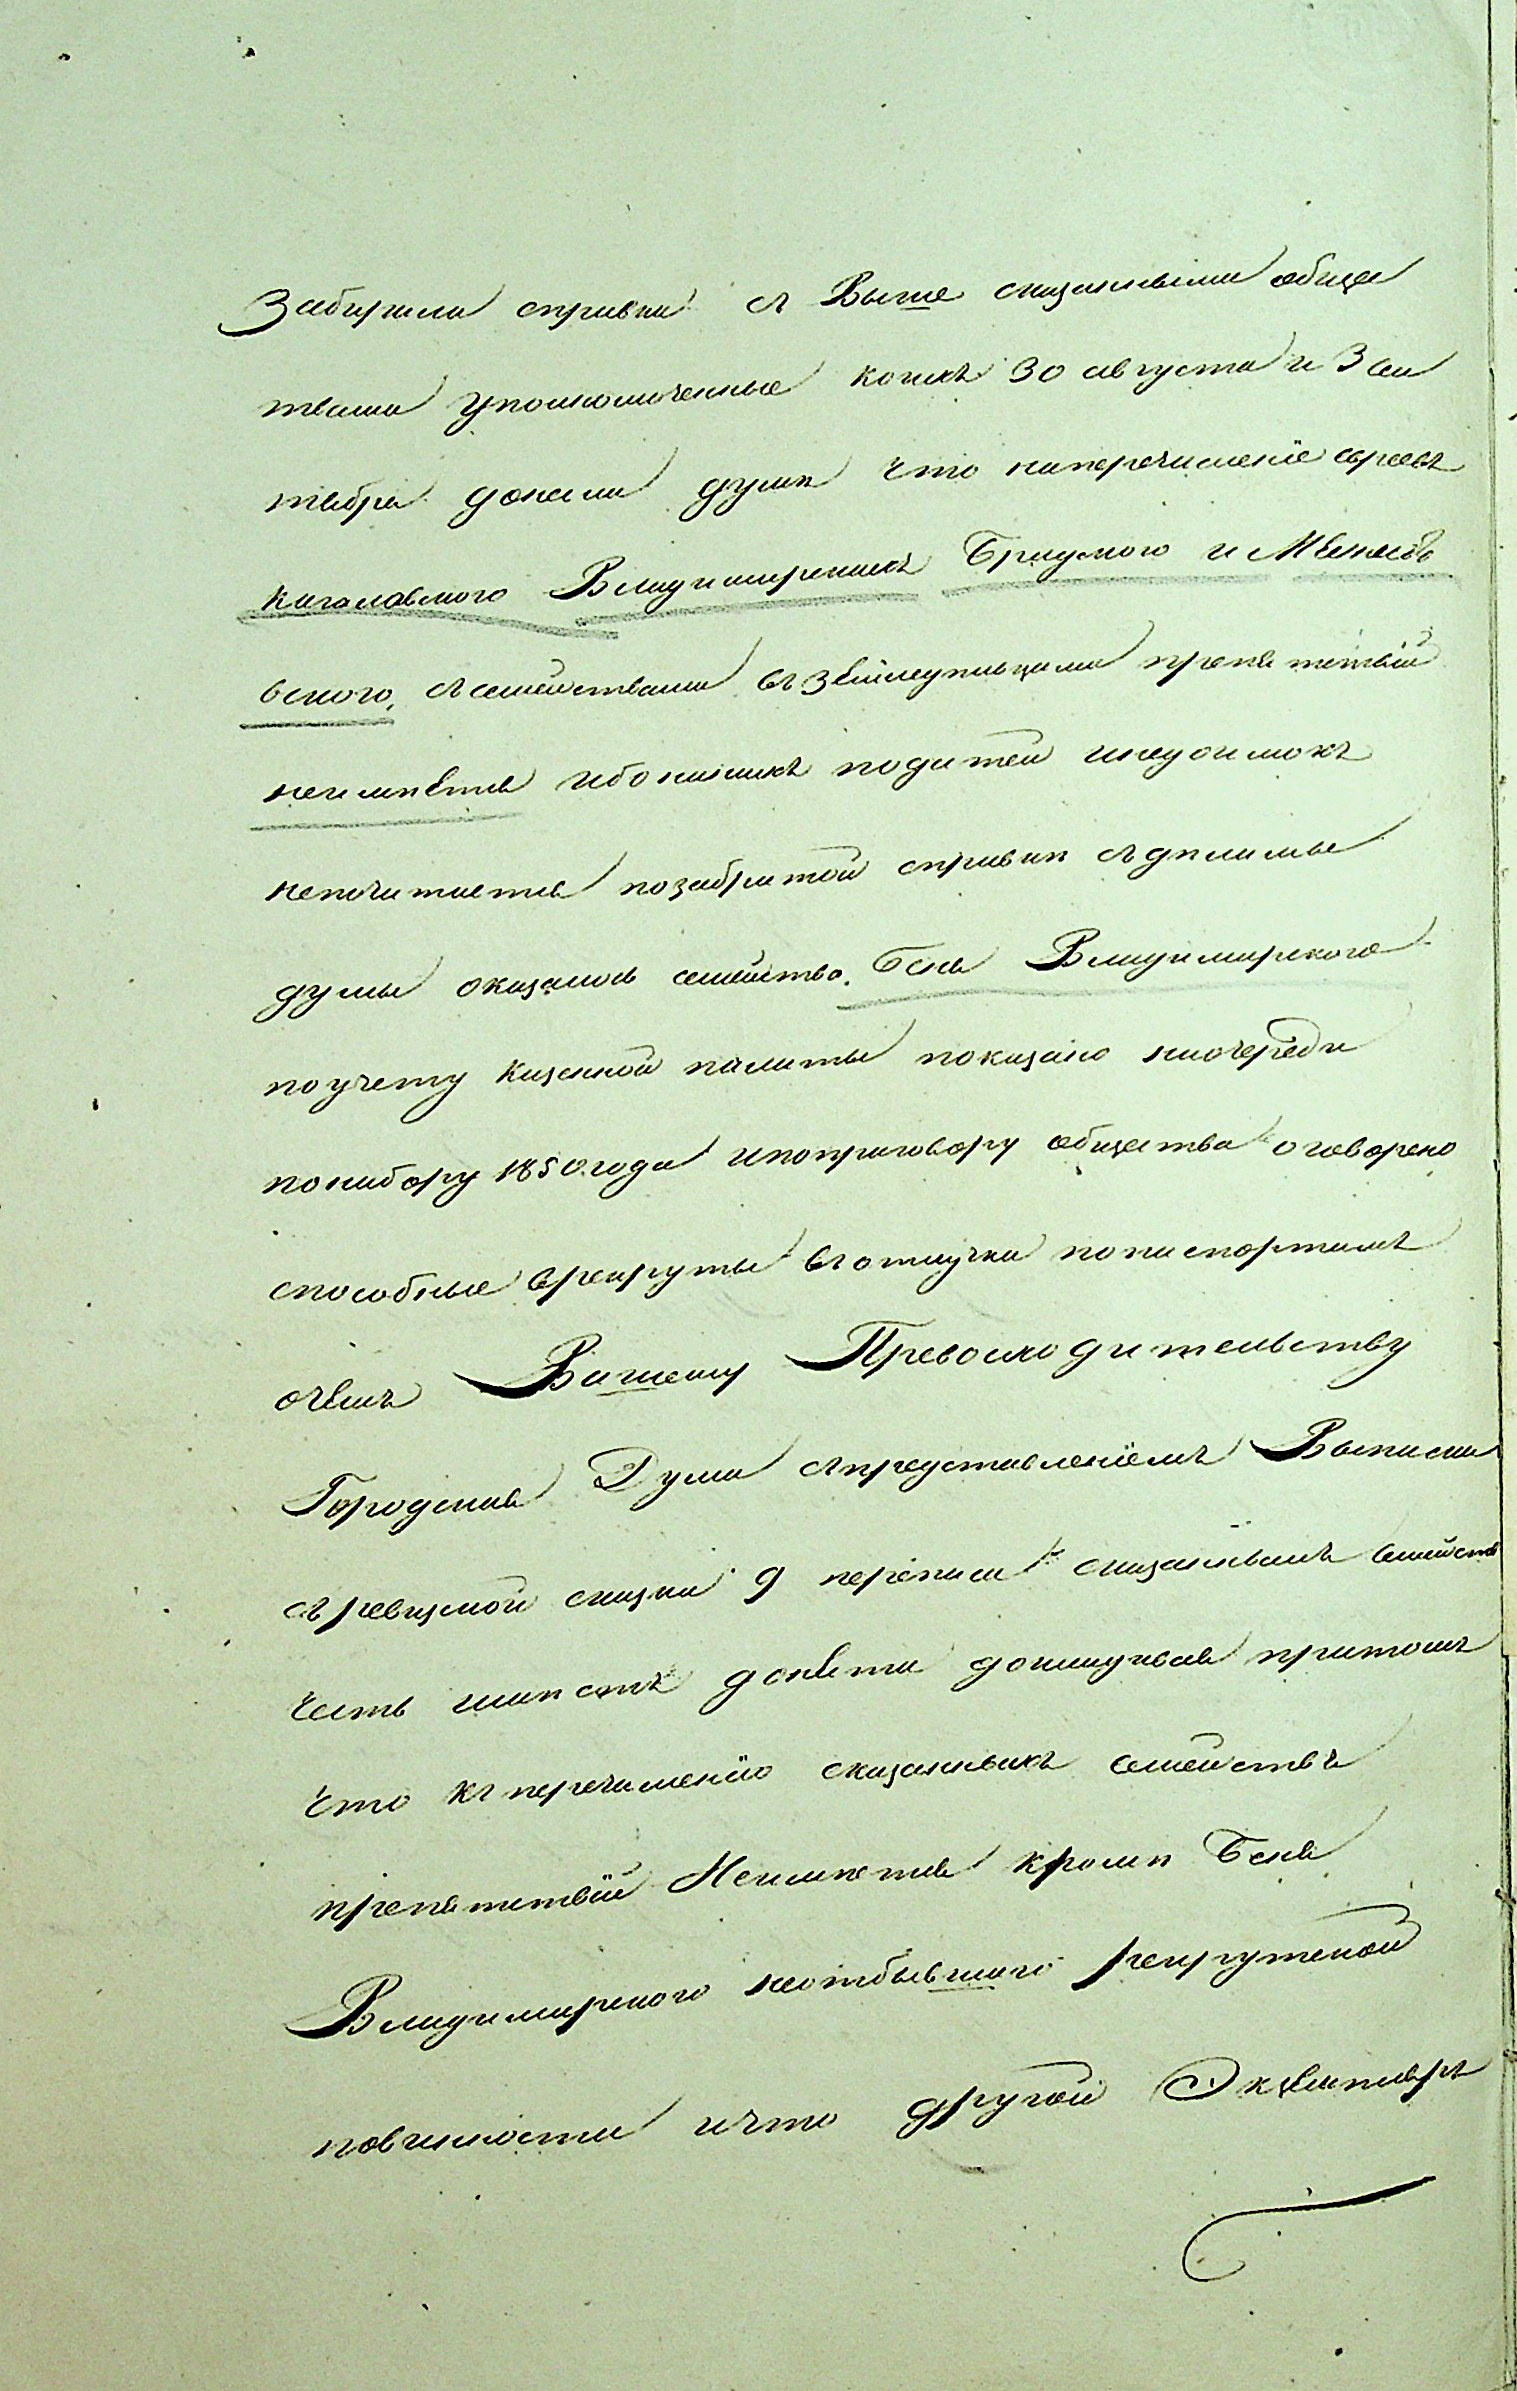 Забирала справки съ Выше сказанными обще
твами уполномоченные коихъ 30 августа и 3 сен
тября донели думѣ что наперечисленіе евреевъ
Кагаловмого Владимирскихъ и
вского, съсемействами въ препятствій
неимѣется ибонанихъ податей инедоимокъ
непочитается позабратой справкѣ съдѣлимы
думы оказалось семейство. Беня Владимирского
поучету Казенной палаты показано наочереди
понабору 1850 года ипоприговору общества оговорено
способные врекруты вотлучки попаспортамъ
очемъ Вашему Превосходительству
Городская Дума съпредставленіемъ Выписки
съревизкой сказки 9 переписи сказаннымъ семейств
честь имѣетъ донести докладывая притомъ
что къ перечисленію сказанныхъ семействъ
препятствій Неимѣется кромѣ Беня
Владимирского неотбывшаго рекрутской
повинности ичто другой Экземпляръ